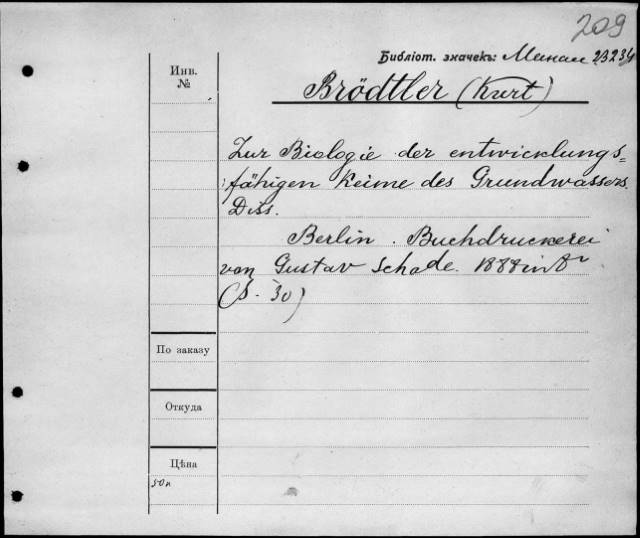 209
Библіот. значекъ: Минак 23234
Инв. №
Brödtler (Kurt)
Zur Biologie der entwicklungs=
fähigen Keime des Grundwassers.
Diss.
Berlin. Buchdruckerei
von Gustav Schade. 1888 in 8º
(S. 30)
По заказу
Откуда
Цѣна
50к